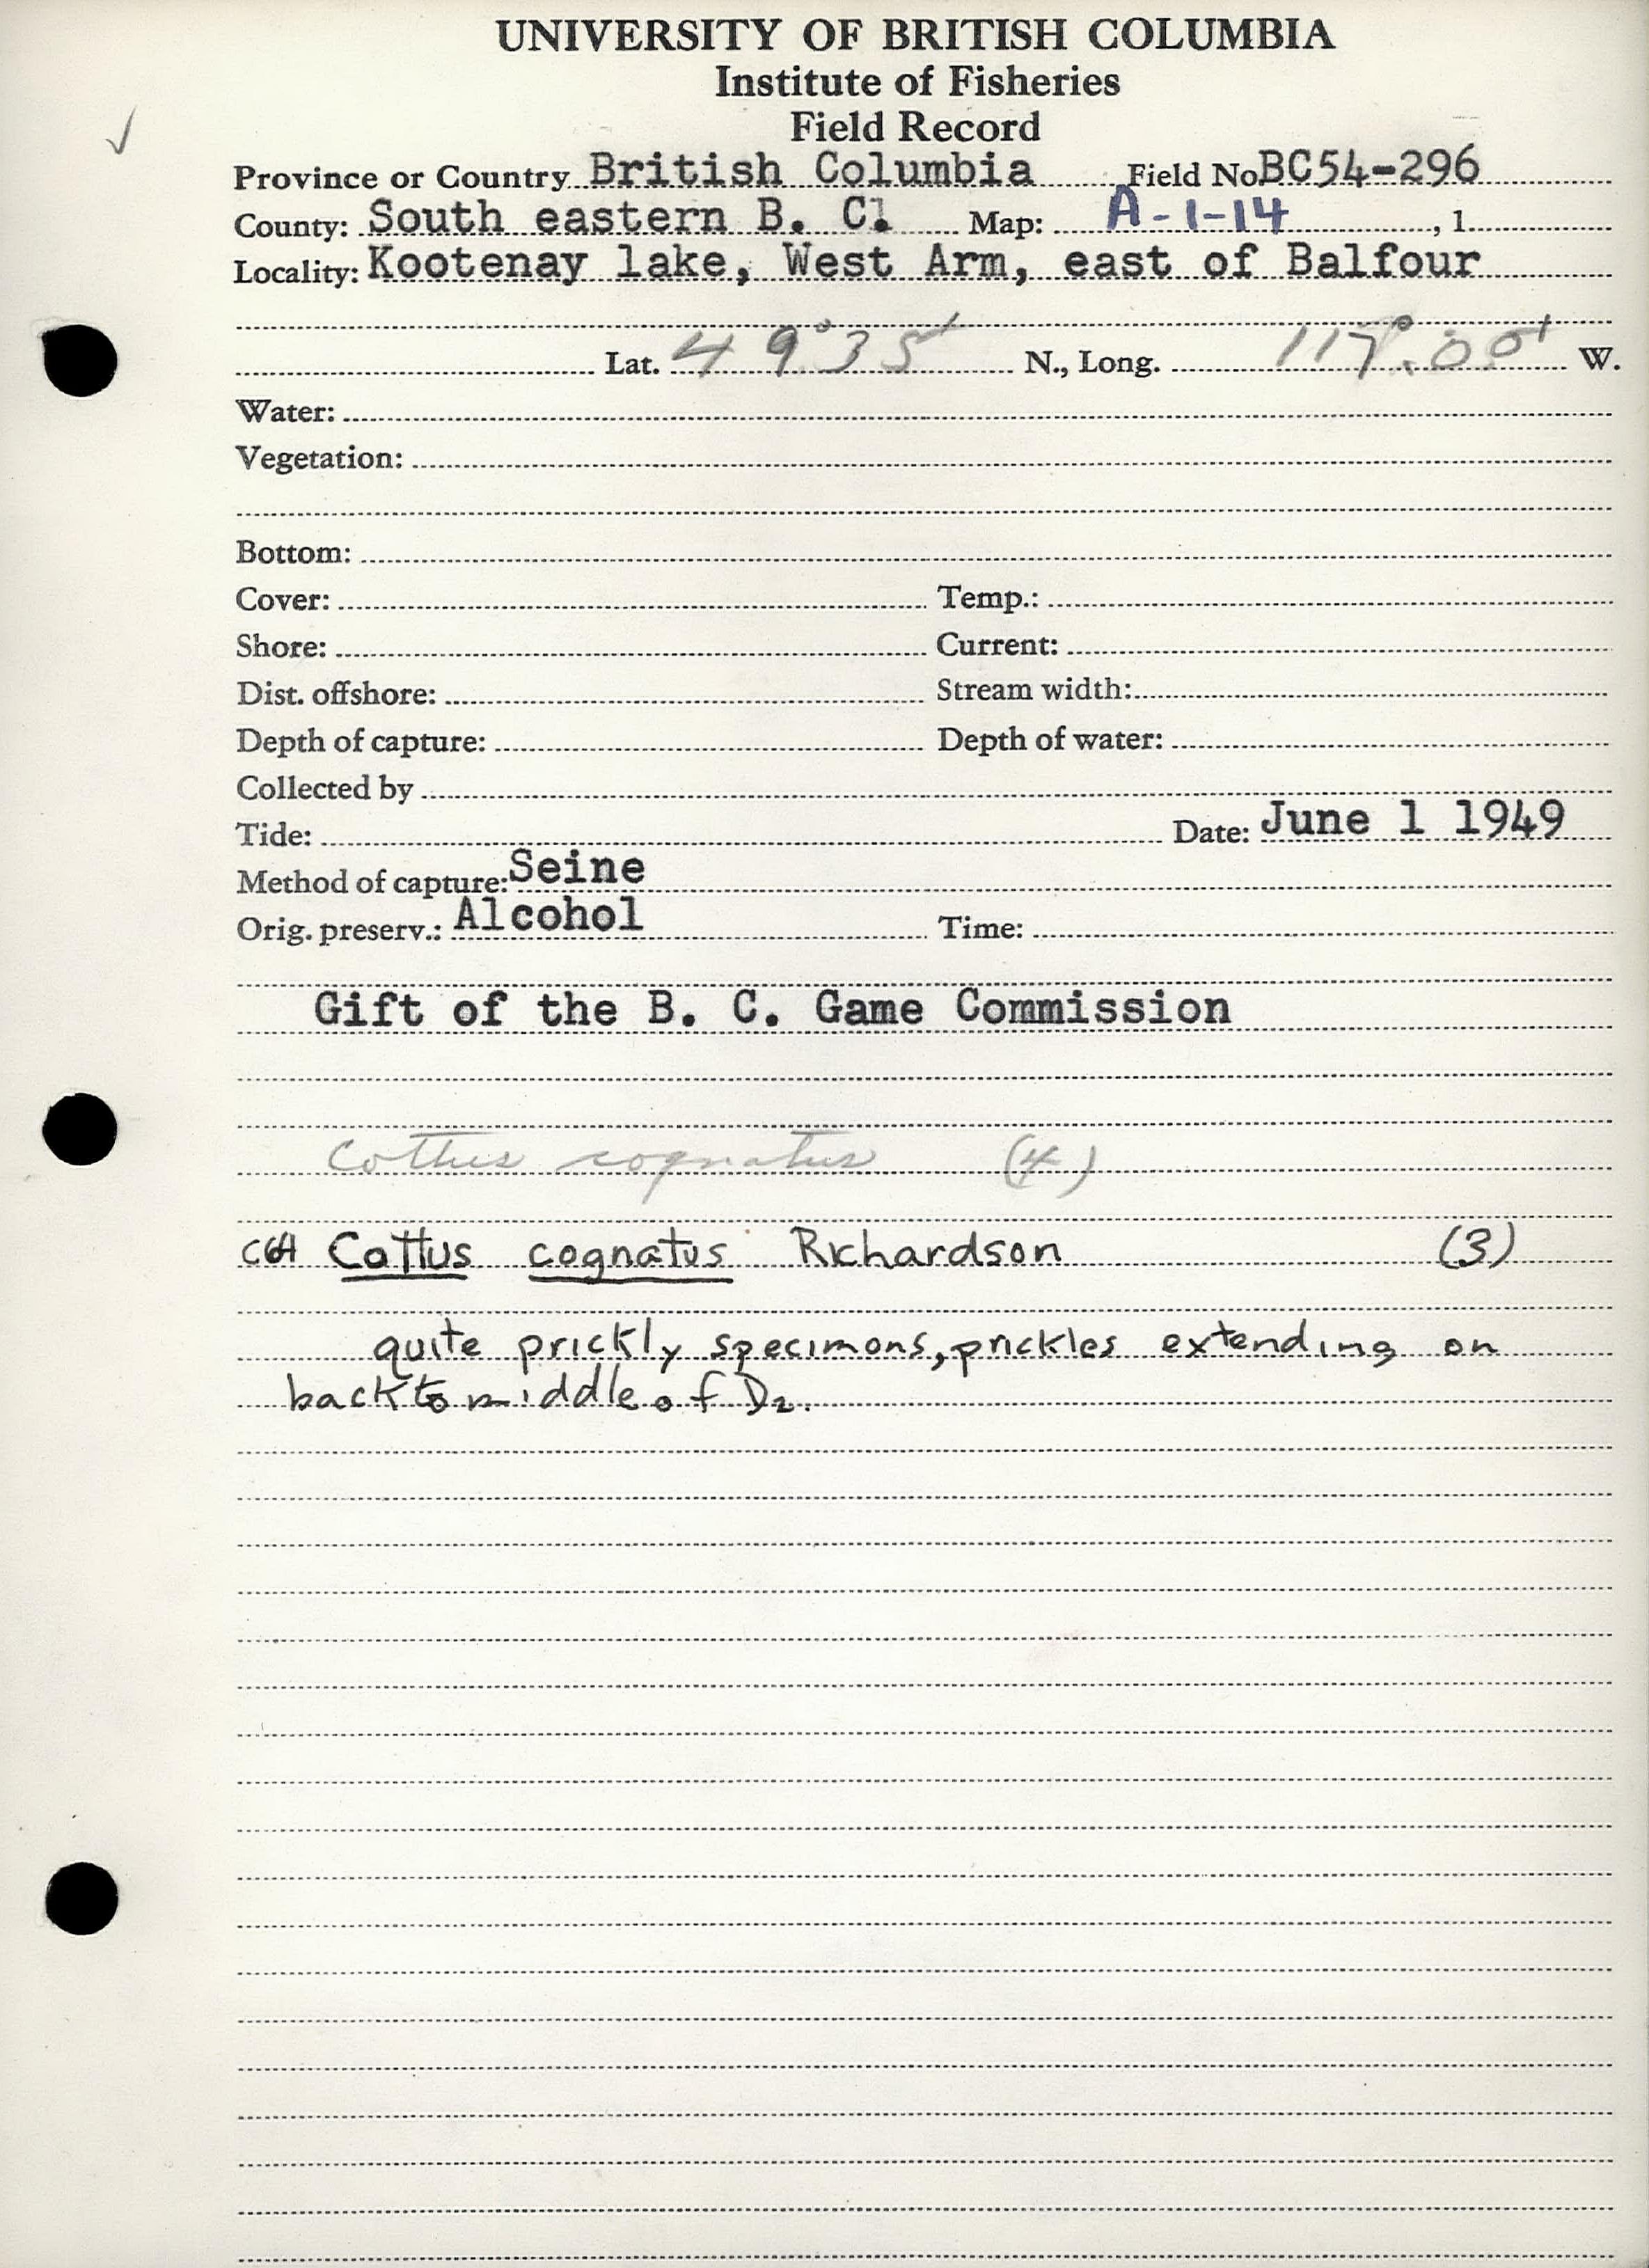 ✓
UNIVERSITY OF BRITISH COLUMBIA
Institute of Fisheries
Field Record
Province or Country British Columbia Field No. BC54-296
County: South eastern B. C. Map: A-1-14 , 1
Locality: Kootenay lake, West Arm, east of Balfour
Lat. 49°35' N., Long. 117°.00' W.
Water:
Vegetation:
Bottom:
Cover: Temp.:
Shore: Current:
Dist. offshore: Stream width:
Depth of capture: Depth of water:
Collected by
Tide: Date: June 1 1949
Method of capture: Seine
Orig. preserv.: Alcohol Time:
Gift of the B. C. Game Commission
Cottus cognatus (4)
Cottus cognatus Richardson (3)
quite prickly specimons, prickles extending on
back to middle of D2.